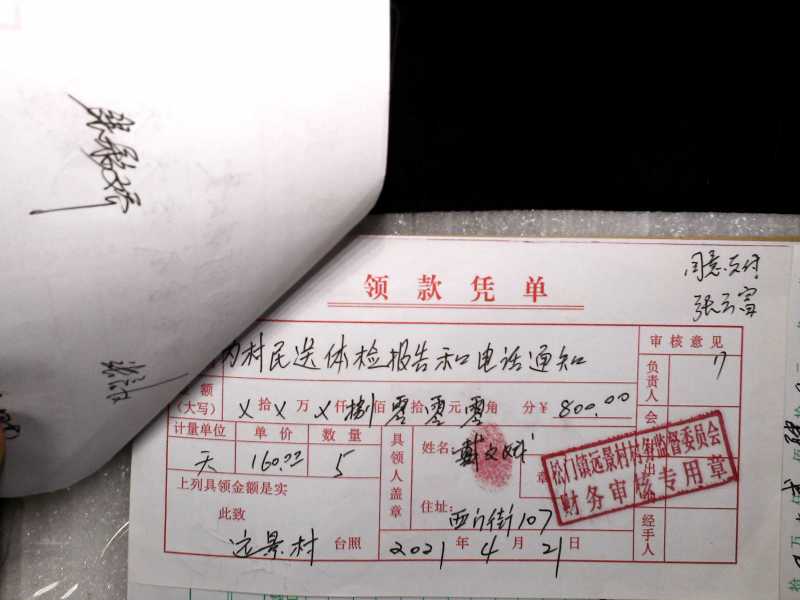 同意支付
张云富
领款凭单
为村民送体检报告和电话通知
审核意见
负责人
额
(大写) 拾 万 仟捌佰零拾零元零角 分￥800.00
会
计量单位 单价 数量
天 160.00 5
具领人盖章
姓名:戴文
章
住址:西门街107
松门镇远景村村务监督委员会
财务审核专用章
出
上列具领金额是实
此致
远景村 台照
2021年4月21日
经手人